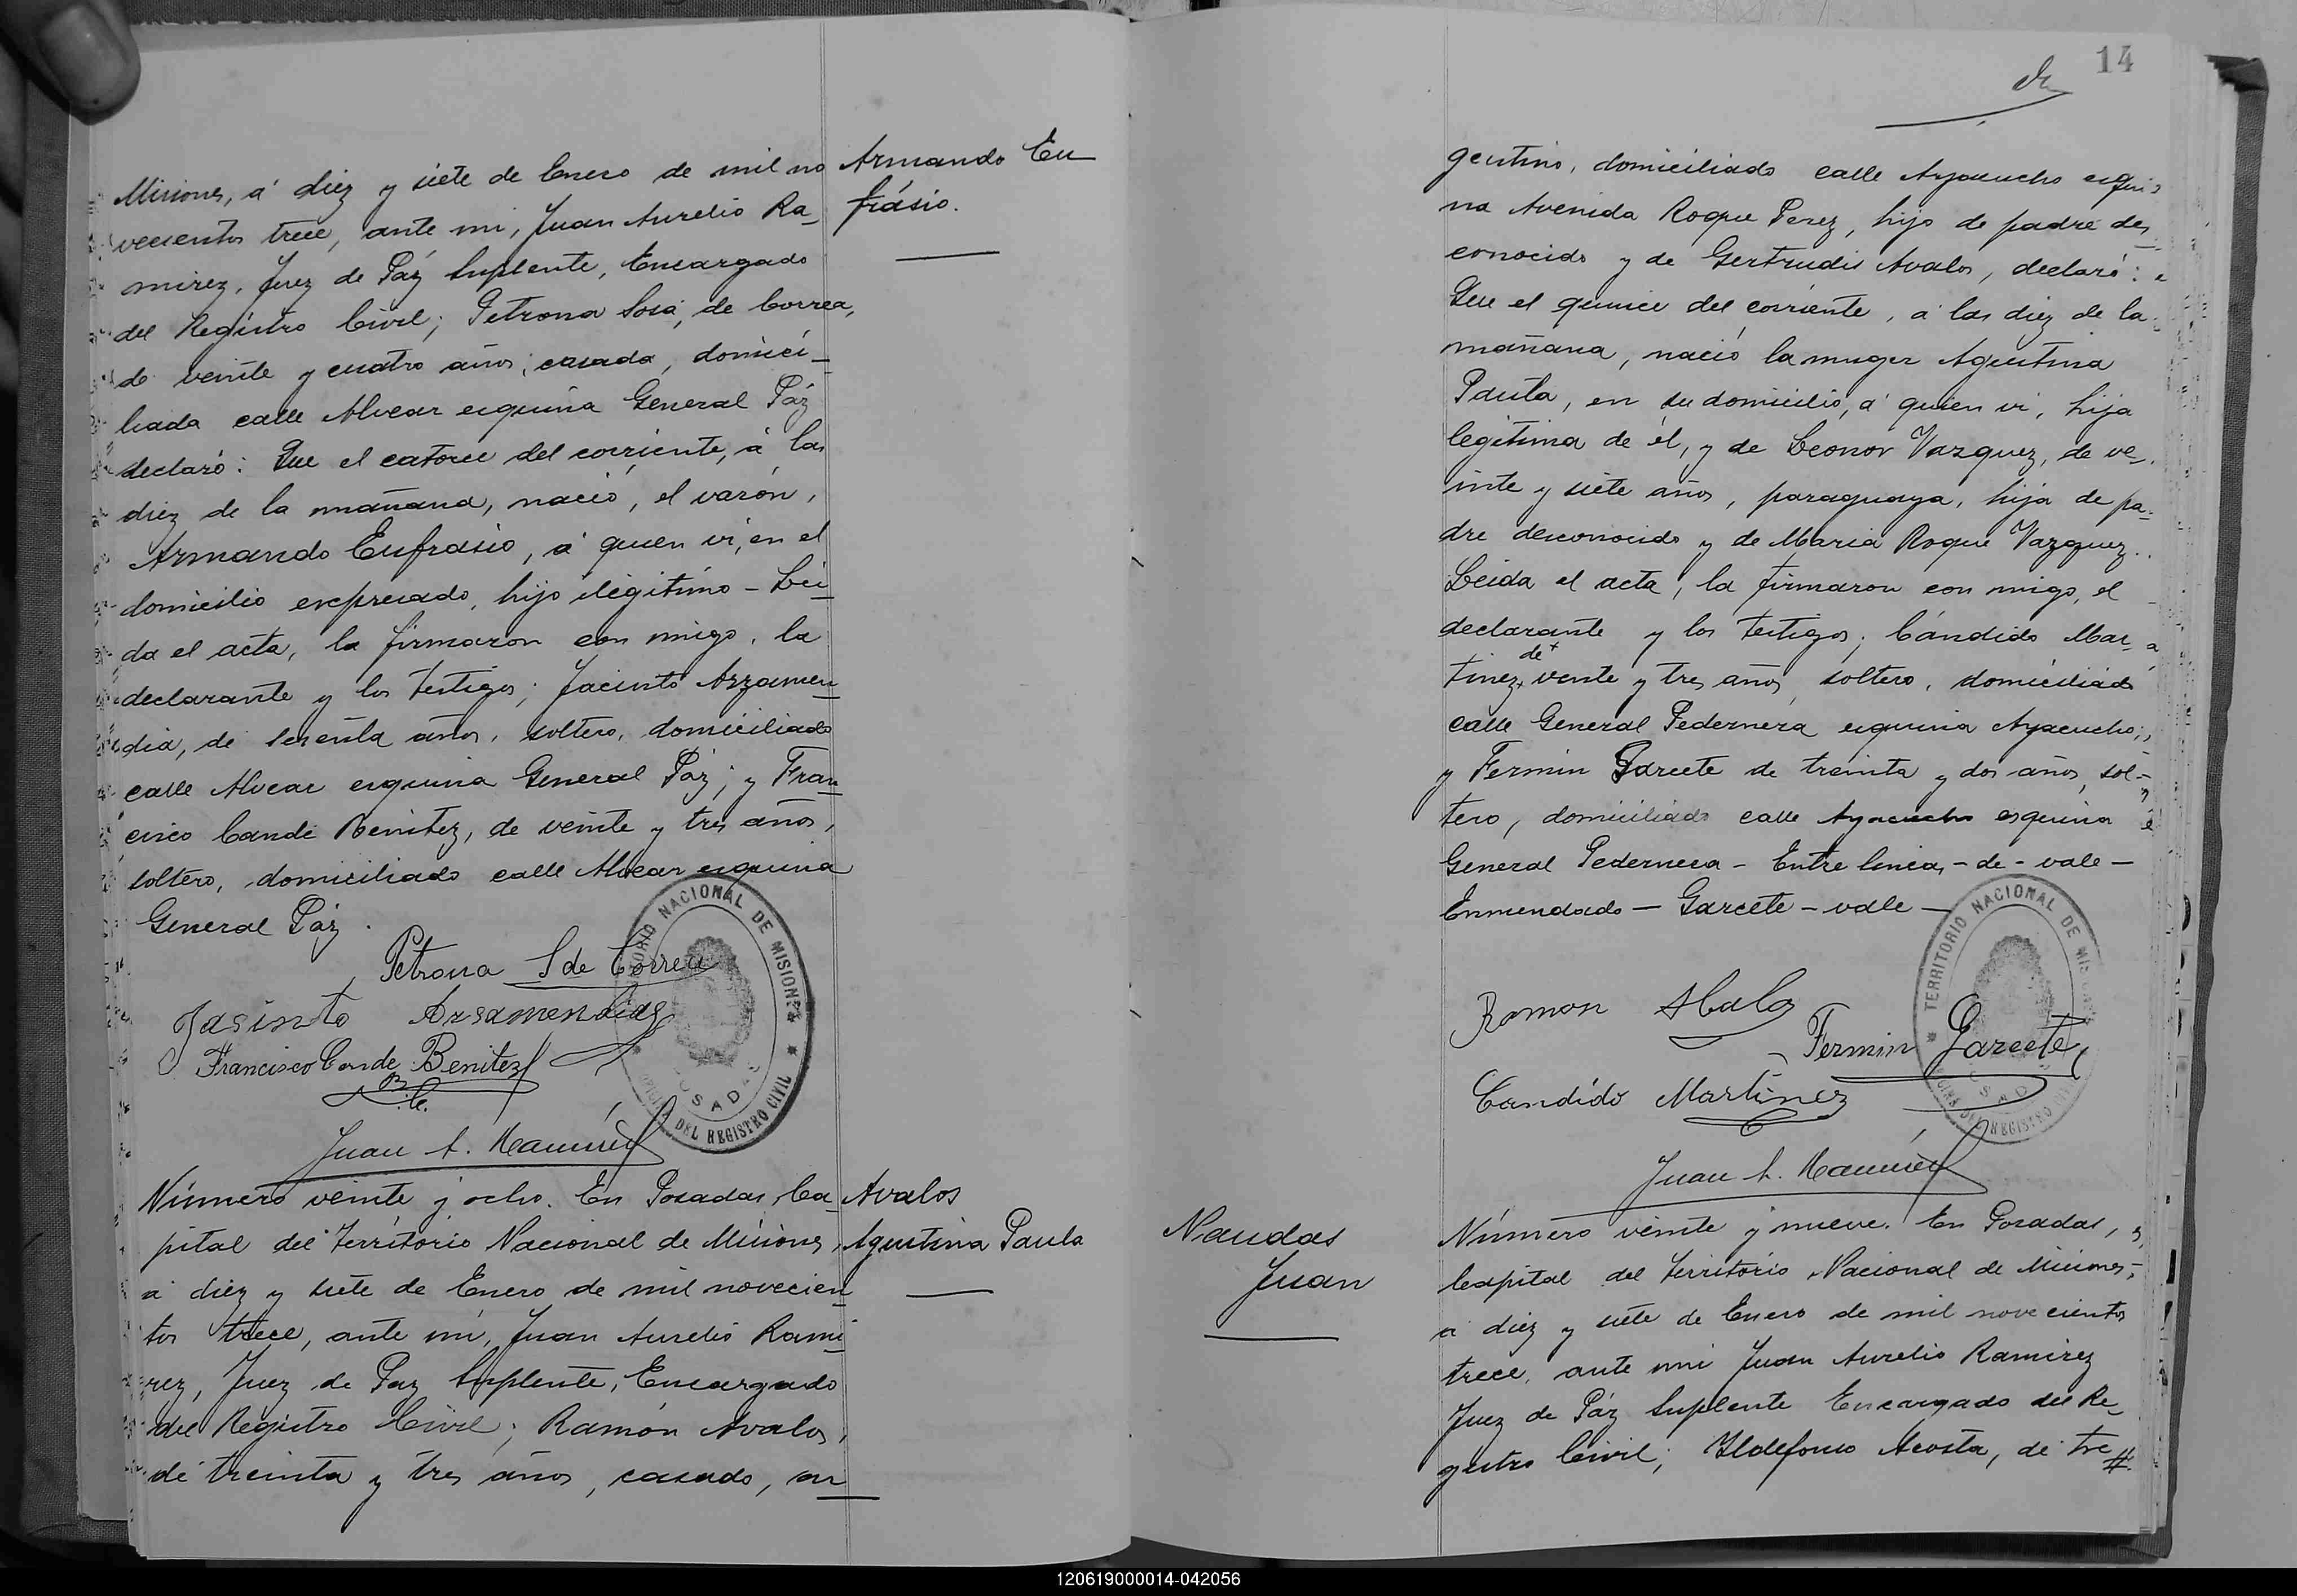 Armando Eu
frásio.
Misiones, á diez y siete de Enero de mil no
vecientos trece, ante mi, Juan Aurelio Ra_
mirez, Juez de Páz Suplente, Encargado
del Registro Civil; Petrona Sosa, de Correa,
de veinte y cuatro años, casada, domici_
liada calle Alvear esquina General Páz
declaró: Que el catorce del corriente, á las
diez de la mañana, nació, el varón,
Armando Eufrasio, á quien vi, en el
domicilio expresado, hijo ilegitimo - Lei_
da el acta, la firmaron con migo, la
declarante y los testigos; Jacinto Arzamen_
dia, de sesenta años, soltero, domiciliado
calle Alvear esquina General Páz; y Fran_
cisco Cande Benitez, de veinte y tres años,
soltero, domiciliado calle Alvear esquina
General Páz.
Petrona S de Correa
Jasinto Arsamendias
Francisco Cande Benitez
Juan A. Ramirez
TERRITORIO NACIONAL DE MISIONES
POSADAS
OFICINA DEL REGISTRO CIVIL
Avalos
Agustina Paula
Número veinte y ocho. En Posadas, Ca_
pital del Territorio Nacional de Misiones,
á diez y siete de Enero de mil novecien_
tos trece, ante mi, Juan Aurelio Rami_
rez, Juez de Paz Suplente, Encargado
del Registro Civil; Ramón Avalos,
de treinta y tres años, casado, ar_
14
gentino, domiciliado calle Ayacucho esqui_
na Avenida Roque Perez, hijo de padre des_
conocido y de Gertrudis Avalos, declaró:
Que el quince del corriente, á las diez de la
mañana, nació la muger Agustina
Paula, en su domicilio, á quien vi, hija
legitima de él, y de Leonor Vazquez, de ve_
inte y siete años, paraguaya, hija de pa_
dre desconocido y de Maria Roque Vazquez.
Leida el acta, la firmaron con migo, el
declarante y los testigos; Cándido Mar_
de+
tinez+ veinte y tres años, soltero, domiciliado
calle General Pedernera esquina Ayacucho;
y Fermin Garcete de treinta y dos años, sol_
tero, domiciliado calle Ayacucho esquina
General Pedernera - Entre lineas - de - vale -
Enmendado - Garcete - vale -
Ramon Abalo
Fermin Garcete
Candido Martinez
Juan A. Ramirez
TERRITORIO NACIONAL DE MISIONES
POSADAS
OFICINA DEL REGISTRO CIVIL
Naudas
Juan
Número veinte y nueve. En Posadas,
Capital del Territorio Nacional de Misiones,
á diez y siete de Enero de mil novecientos
trece, ante mi Juan Aurelio Ramirez
Juez de Páz Suplente Encargado del Re_
gistro Civil; Ildefonso Acosta, de tre
120619000014-042056